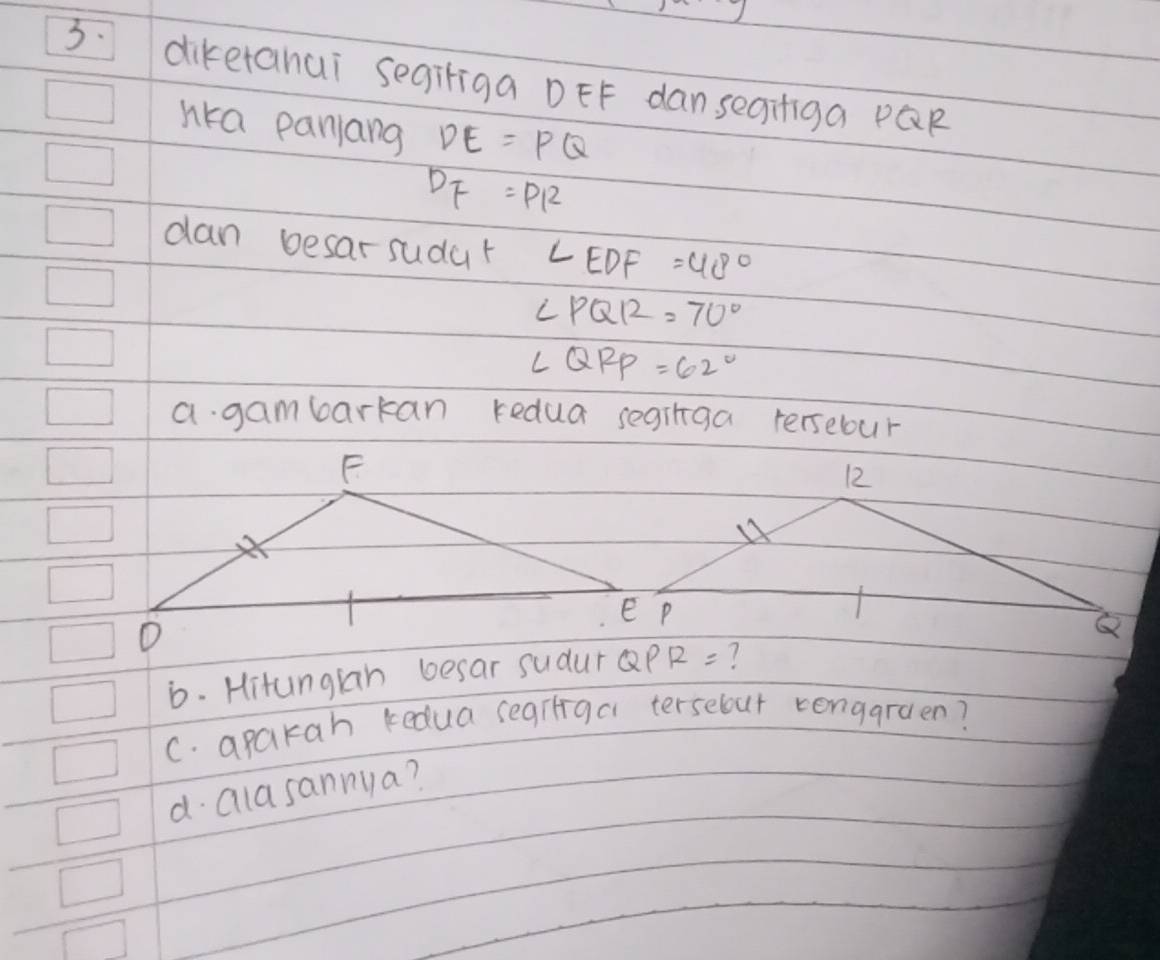 3. diketahui segitiga DEF dan segitiga PQR
jika panjang DE = PQ
DF = PR
dan besar sudut ∠EDF = 48°
∠PQR = 70°
∠QRP = 62°
a. gambarkan kedua segitiga tersebut
F R
D E P Q
b. Hitunglah besar sudut QPR = ?
c. apakah kedua segitiga tersebut kongqruen?
d. alasannya?